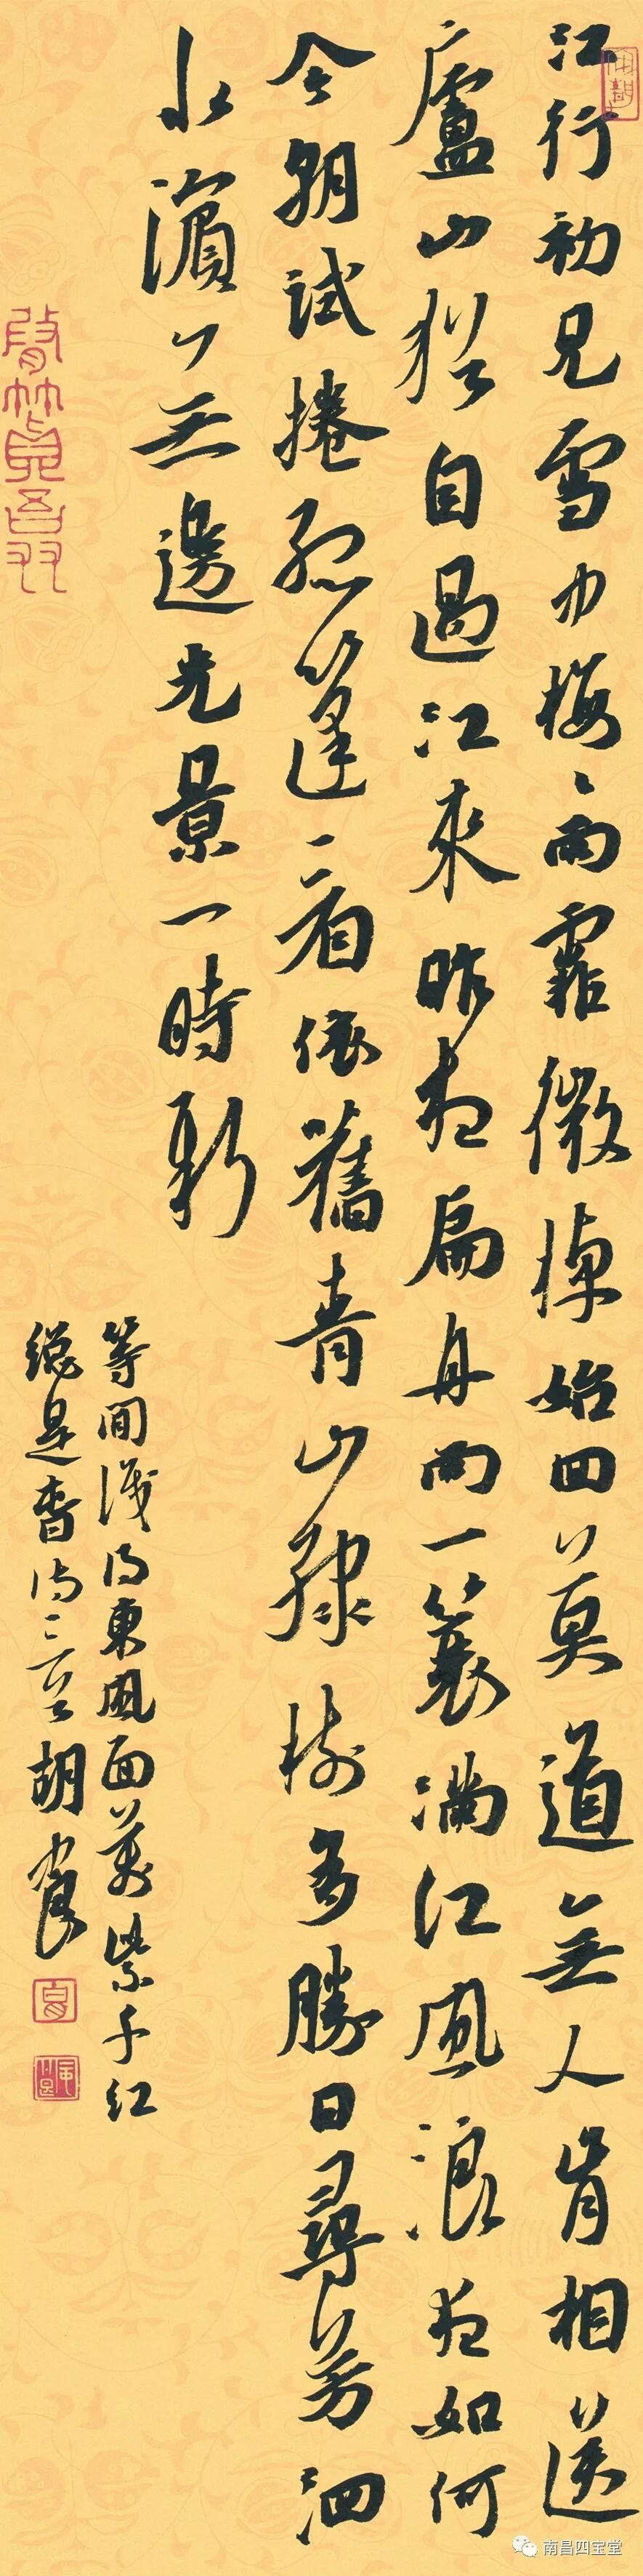 江行初見雪中梅〻雨霏微棹始回莫道無人肯相送
廬山猶自過江來昨夜扁舟雨一蓑滿江風浪夜如何
今朝試捲孤篷看依舊青山綠樹多勝日尋芳泗
水濱無邊光景一時新
等閒識得東風面萬紫千紅
總是春詩三首胡
南昌四宝堂